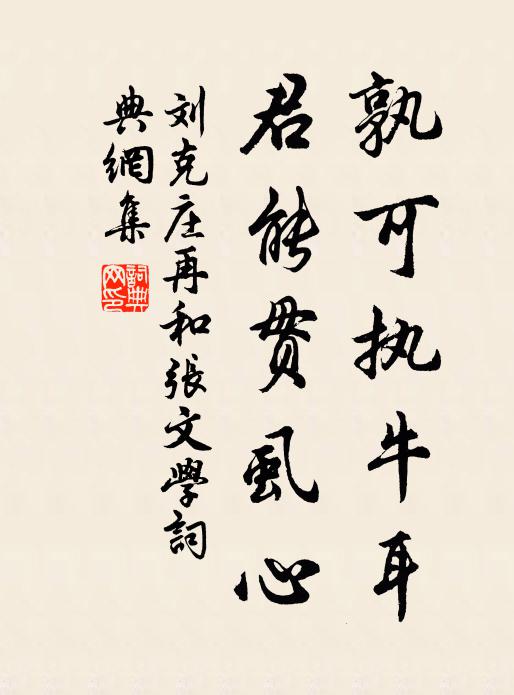 孰可执牛耳
君能贯虱心
刘克庄再和張文學詞
典網集
詞典
网印